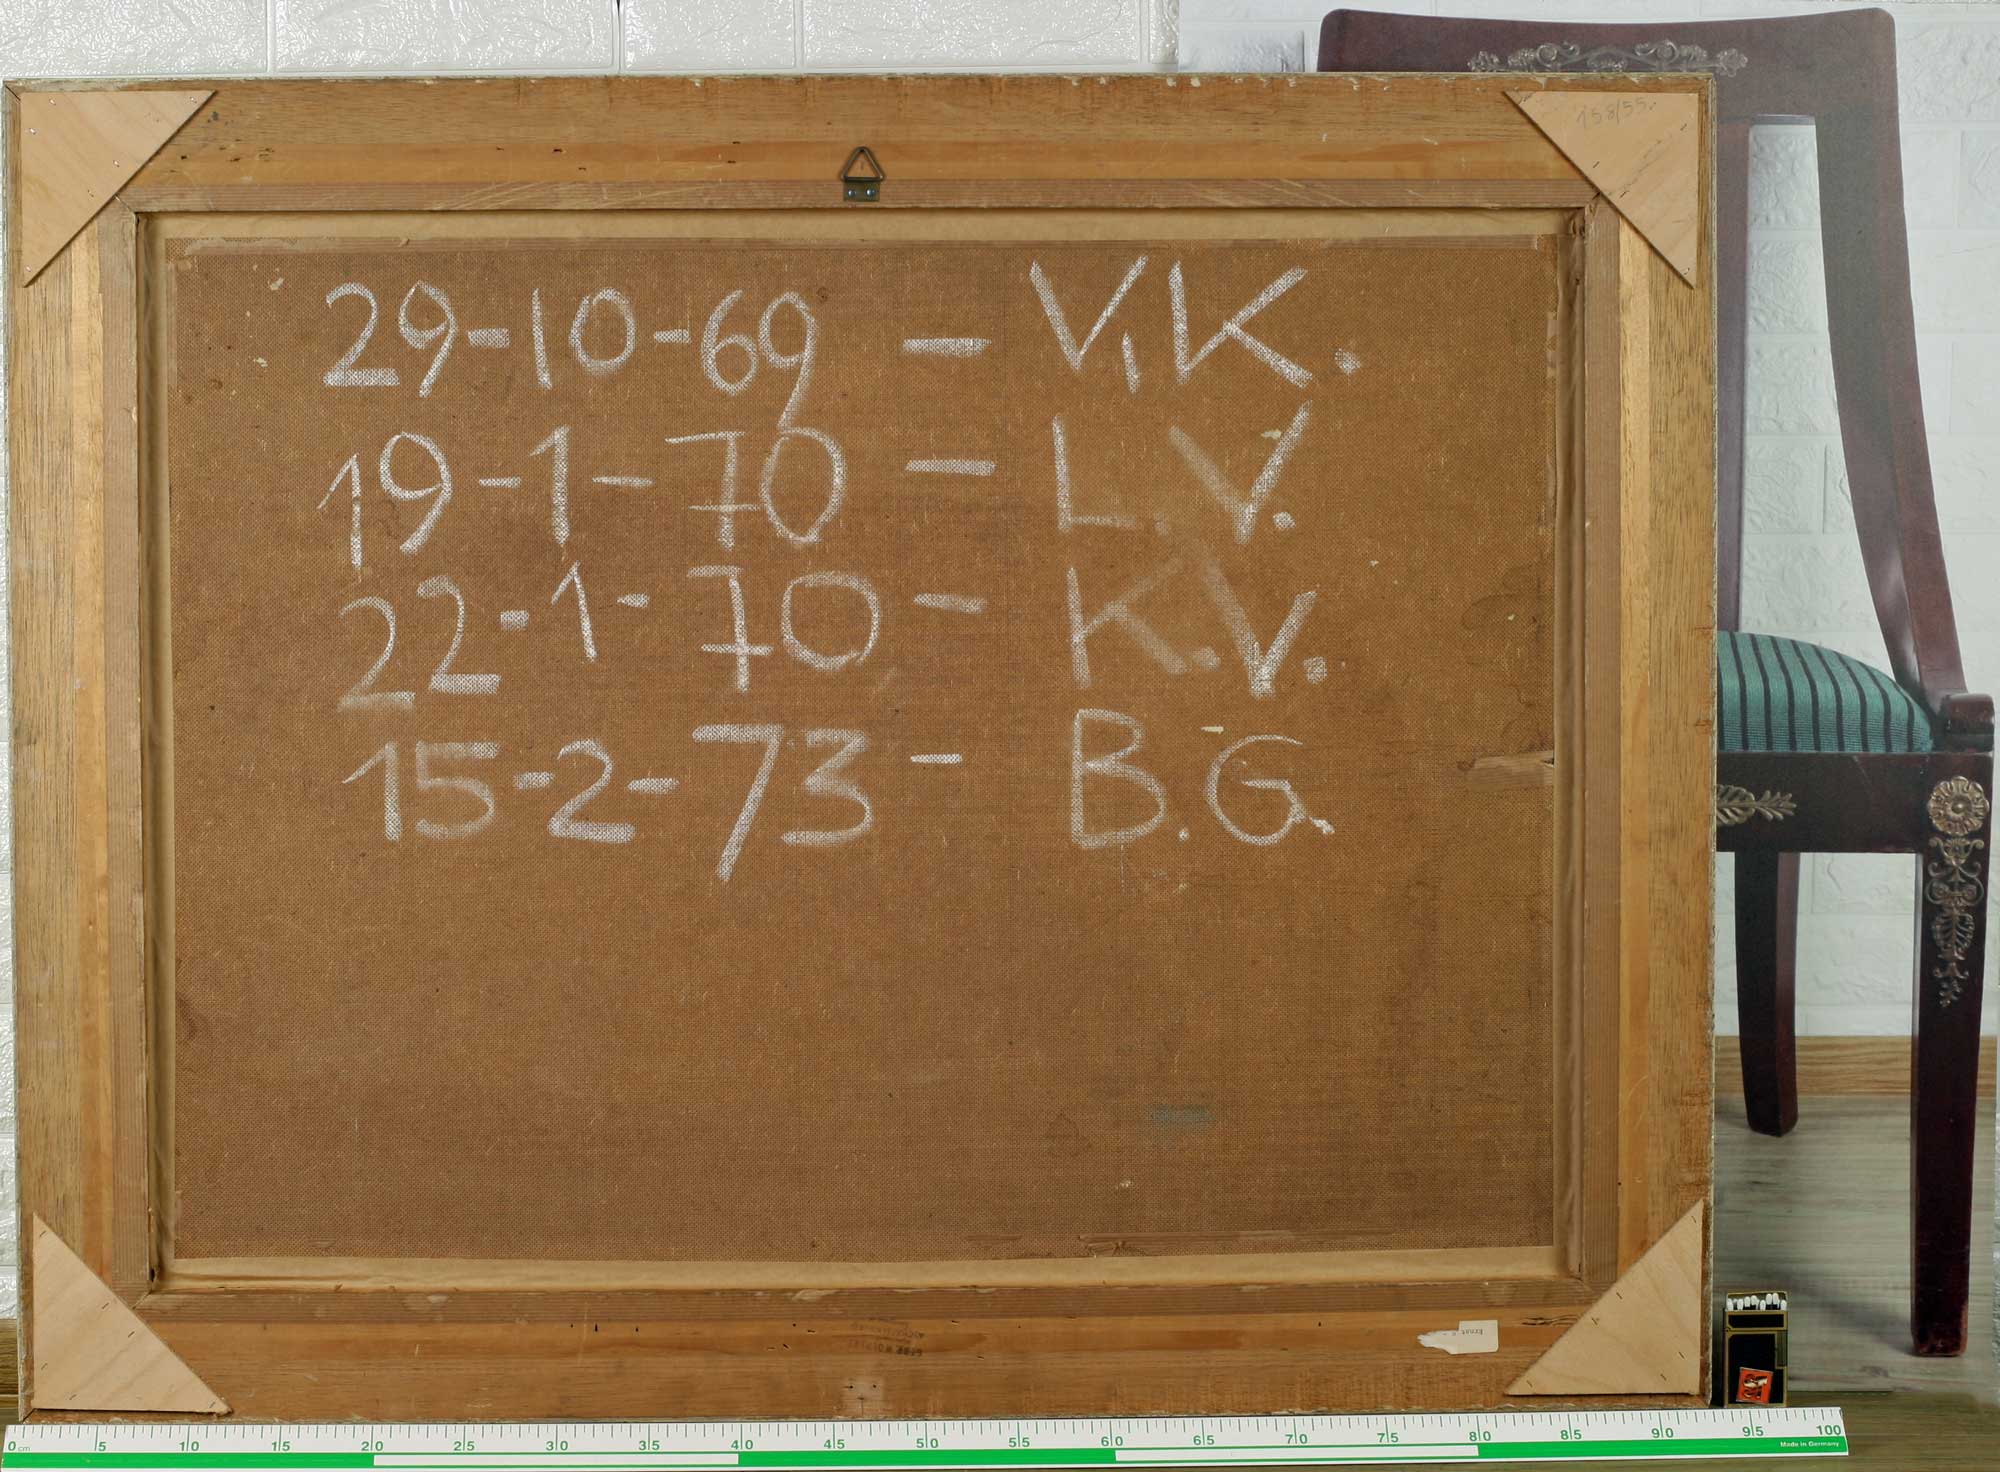 158/55.
29-10-69 — V.K.
19-1-70 — L.V.
22-1-70 — K.V.
15-2-73 — B.G.
Ernst
0 cm 5 10 15 20 25 30 35 40 45 50 55 60 65 70 75 80 85 90 95 100
Made in Germany